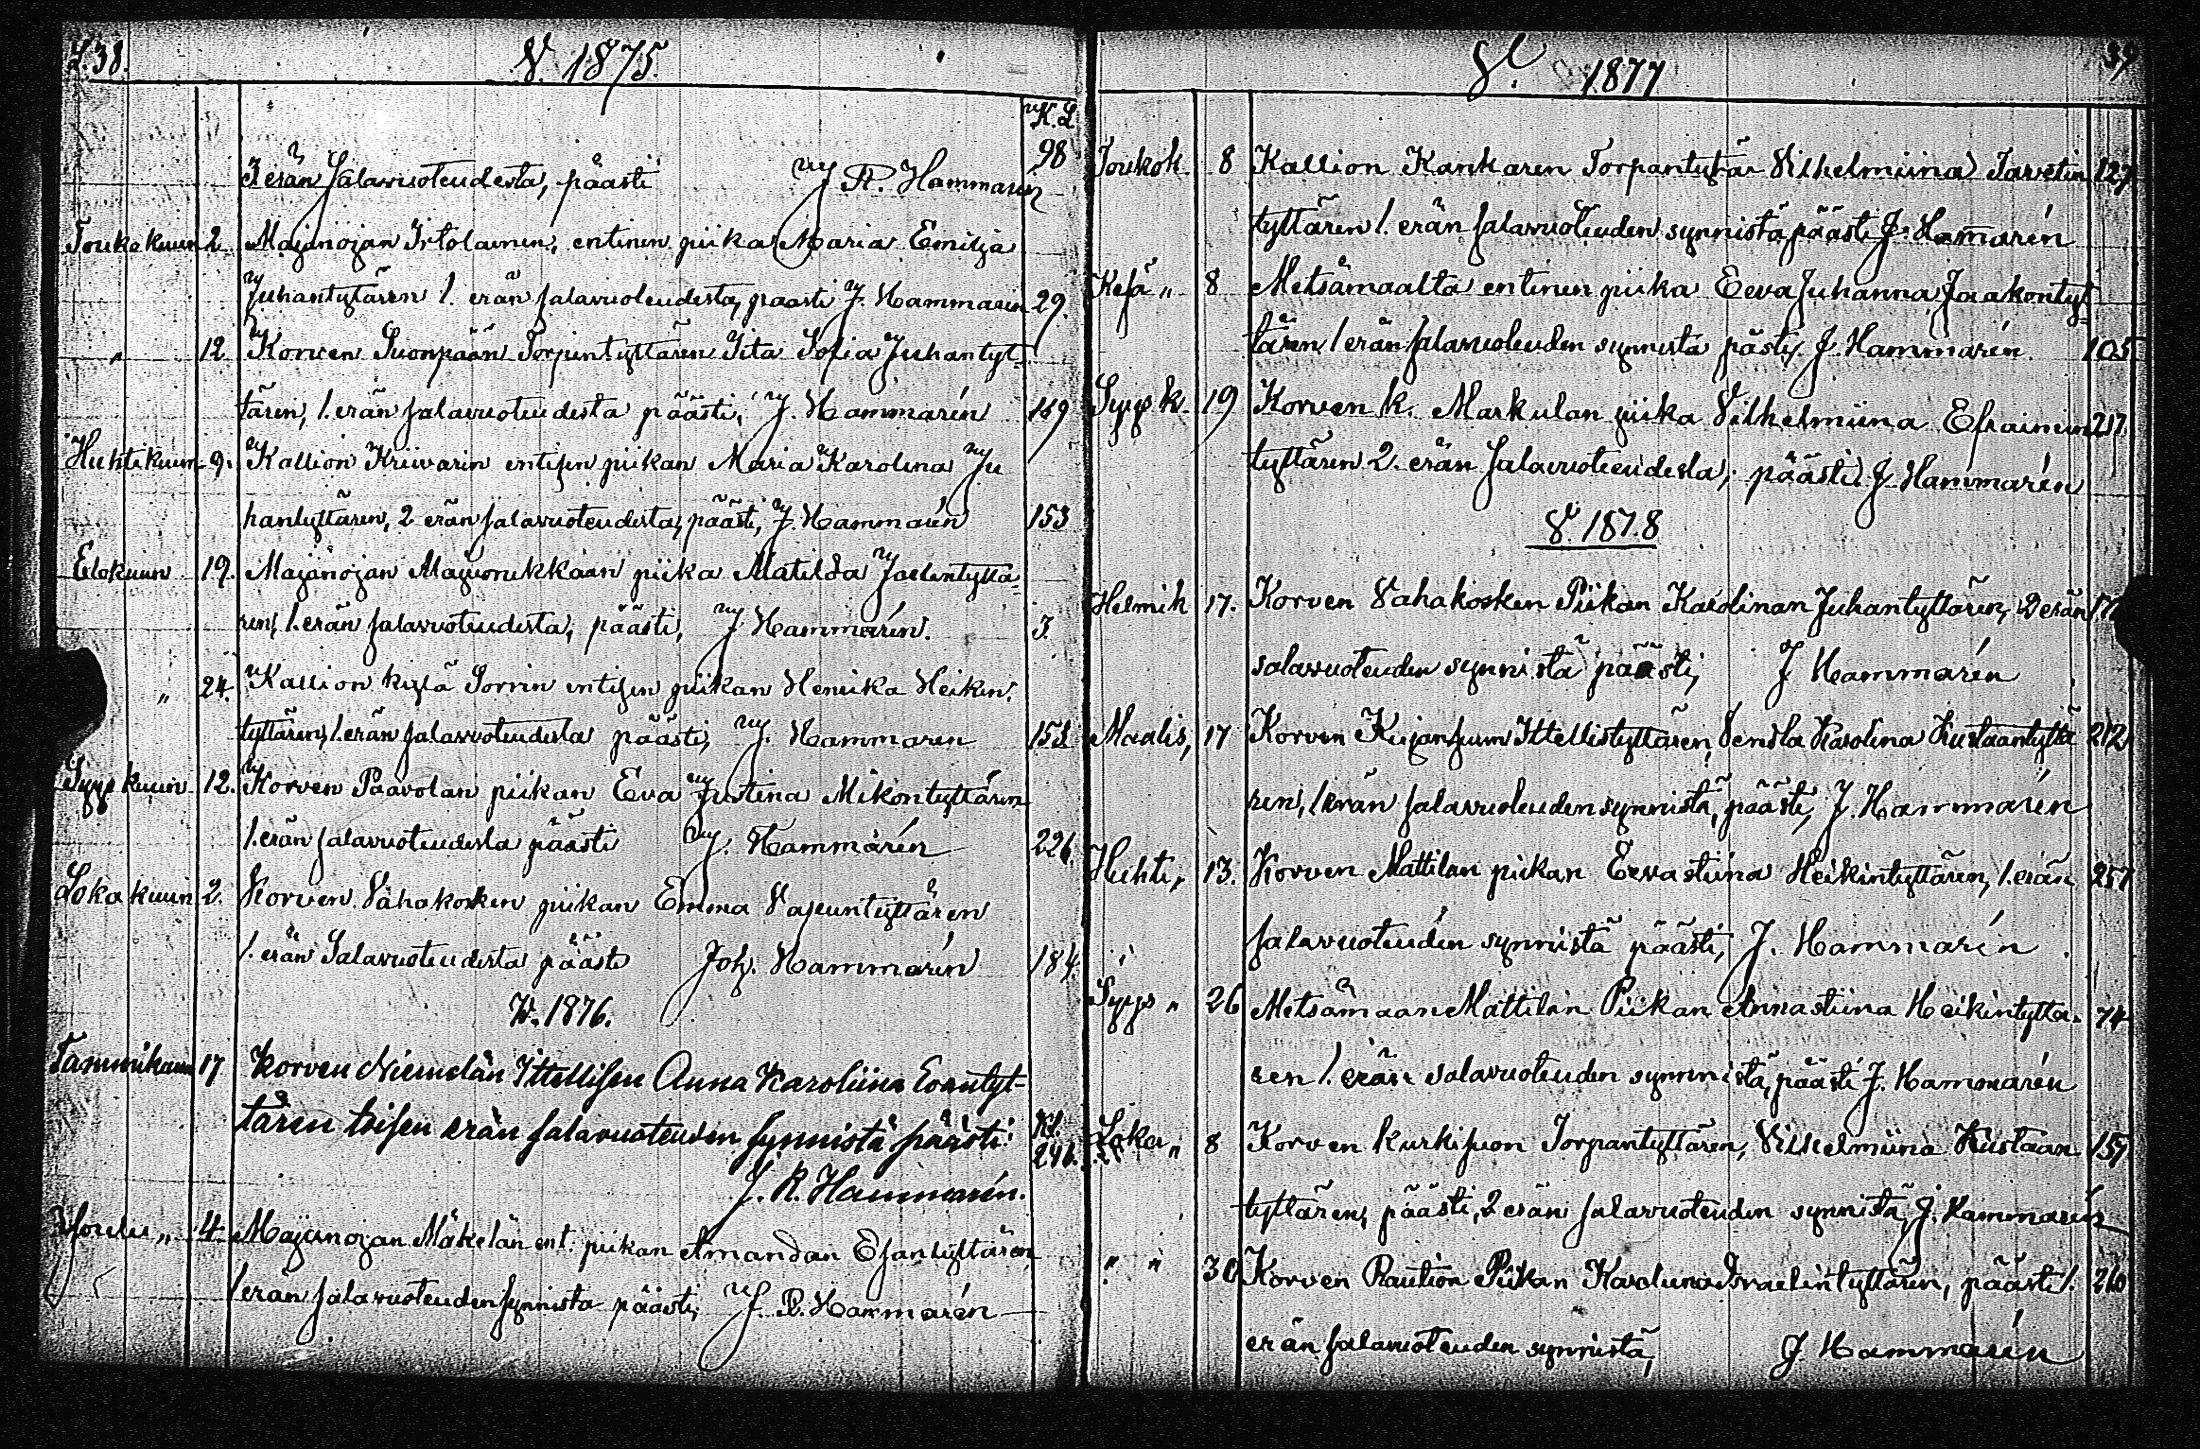 L. 38.
V. 1875.
K. L.
3 erän Salavuoteudesta, päästi J. R. Hammarén 98
Toukokuun 2. Majanojan Irtolainen, entinen piika Maria Emilja
Juhantytären 1. erän salavuoteudesta, päästi J. Hammarén 29.
" 12. Korven Suonpään Torpintyttären Iita Sofia Juhantyt-
tären, 1. erän salavuoteudesta päästi, J. Hammarén 169
Huhtikuun 9. Kallion Kriivarin entisen piikan Maria Karolina Ju
hantyttären, 2 erän salavuoteudesta, päästi, J. Hammarén 153
Elokuun 19. Majanojan piika Matilda Joelintyttä-
ren, 1. erän salavuoteudesta, päästi, J Hammarén. 3.
" 24. Kallion kylä Sorrin entisen piikan Henrika Heikin.
tyttären, 1. erän salavuoteudesta päästi, J. Hammarén 153
Syyskuun 12. Korven Paavolan piikan Eva Justina Mikontyttären
1. erän salavuoteudesta päästi J. Hammarén 226.
Lokakuun 2. Korven Vähakosken piikan Emma Vapuntyttären
1. erän Salavuoteudesta päästi Joh. Hammarén 184.
V. 1876.
Tammikuun 17 Korven Niemelän Ittellisen Anna Karoliina Eeantyt-
tären toisen erän salavuoteuden synnistä päästi: Kl. 246.
J. R. Hammarén.
Joulu " 4. Majanojan Mäkelän ent. piikan Amandan Esantyttären
1 erän salavuoteuden synnistä päästi, J. R. Hammarén
39
V. 1877
Toukok 8 Kallion Kankaren Torpantytär Vilhelmiina Tarvetin 127
tyttären 1. erän salavuoteuden synnistä päästi J. Hamarén
Kesä " 8 Metsämaalta entinen piika Eeva Juhanna Jaakontyt-
tären 1 erän salavuoteuden synnistä pästi J. Hammarén 105
Syysk. 19 Korven k. Markulan piika Vilhelmiina Efraimin 217.
tyttären 2. erän salavuoteudesta, päästi J. Hammarén
V. 1878
Helmik 17. Korven Vahakosken Piikan Karolinan Juhantyttären, 2 erän
salavuoteuden synnistä päästi, J Hammarén
Maalis, 17 Korven Kujansuun Ittellistyttären, Vendla Karolina Kustaantyttä 212
ren, 1 erän salavuoteuden synnistä, päästi, J. Hammarén
Huhti " 13. Korven Mattilan piikan Eevastiina Heikintyttären, 1. erän 257
salavuoteuden synnistä päästi, J. Hammarén
Syys " 26 Metsämaan Mattilan Piikan Annastiina Heikintyttä- 74
ren 1. erän salavuoteuden synnistä, päästi J. Hammarén
Loka " 8 Korven Kurkisuon Torpantyttären, Vilhelmiina Kustaan 157
tyttären, päästi, 2 erän salavuoteuden synnistä, J. Hammarén
" " 30 Korven Raution Piikan Karolina Israelintyttären, päästi 1. 260
erän salavuoteuden synnistä, J Hammarén